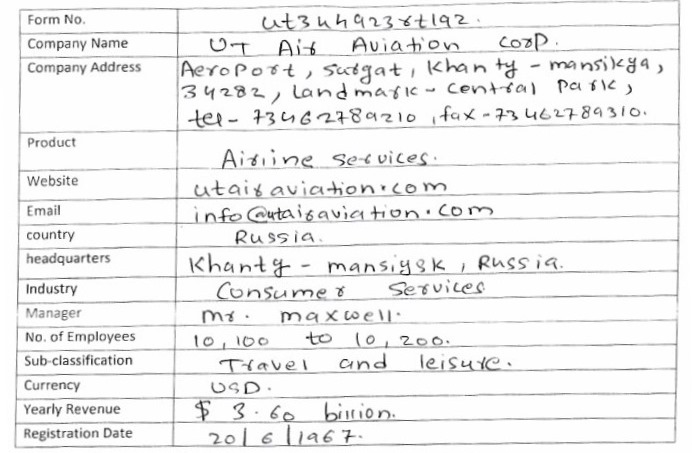 Form No. ut344923rt192.
Company Name UT Air Aviation Corp.
Company Address Aeroport, surgat, Khanty - mansikya,
34282, Landmark - central Park,
tel - 73462789210, fax - 73462789310.
Product Airline services.
Website utairaviation.com
Email info@utairaviation.com
country Russia.
headquarters Khanty - mansiysk, Russia.
Industry Consumer Services
Manager mr. maxwell.
No. of Employees 10,100 to 10,200.
Sub-classification Travel and leisure.
Currency USD.
Yearly Revenue $ 3.60 billion.
Registration Date 20/6/1967.